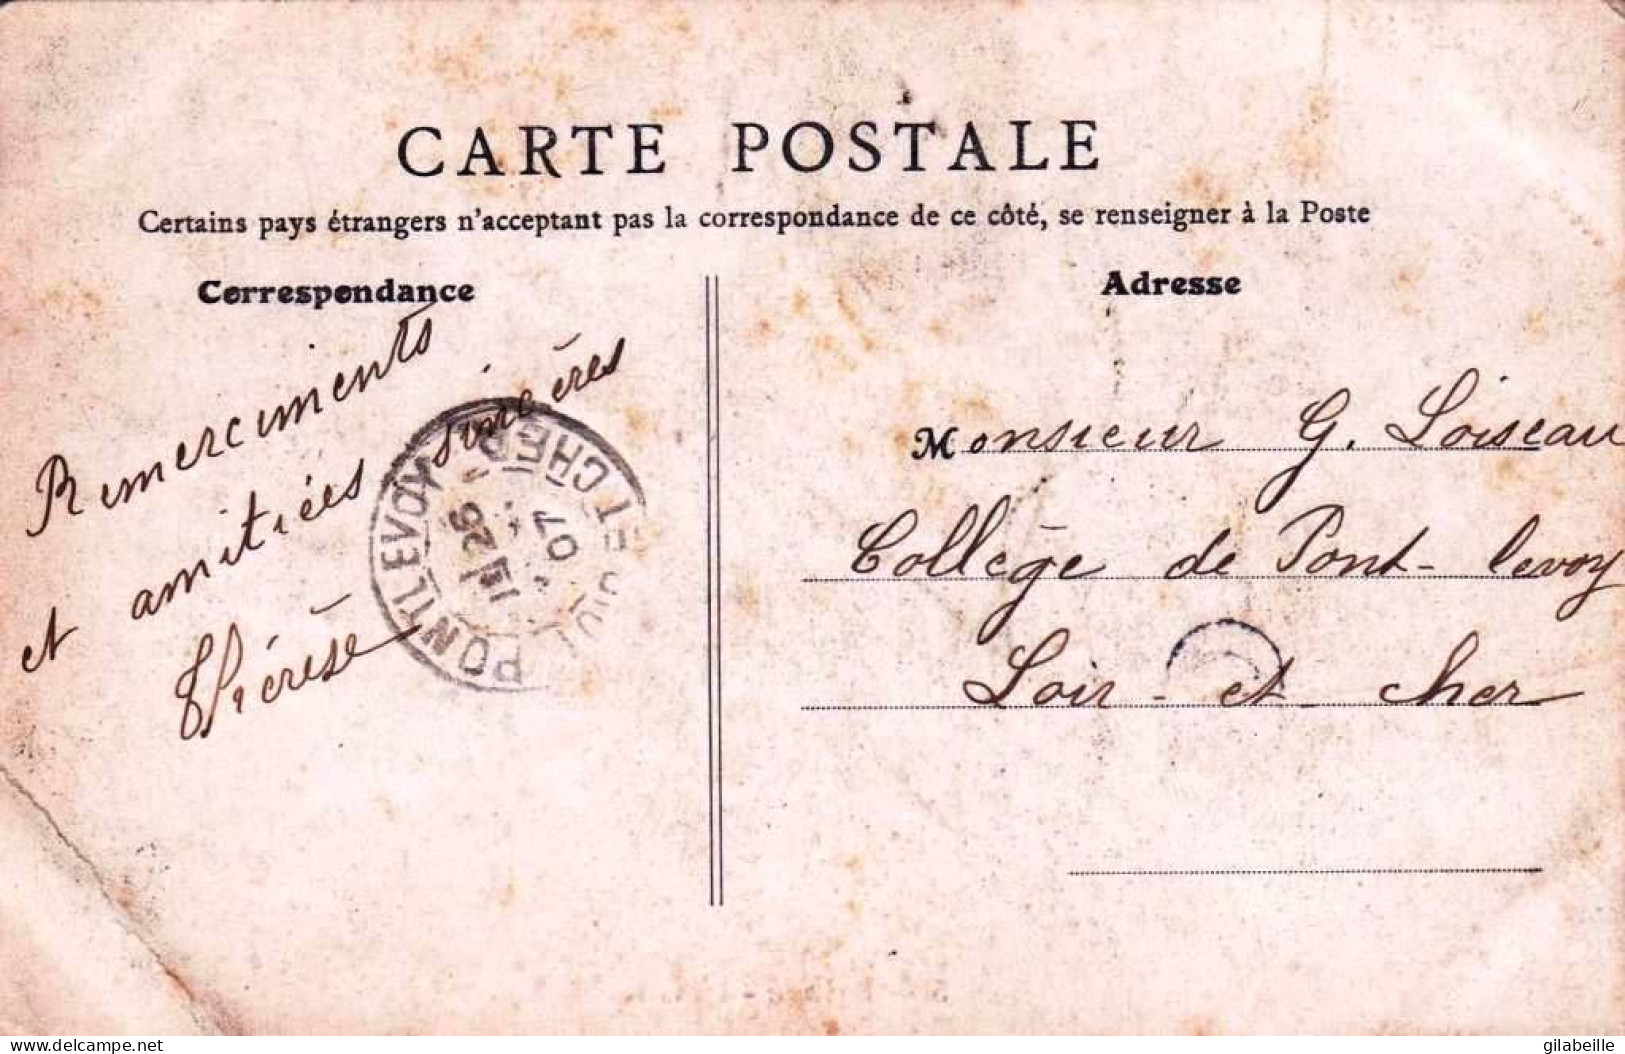 CARTE POSTALE
Certains pays étrangers n'acceptant pas la correspondance de ce côté, se renseigner à la Poste
Correspondance
Remerciments
et amitiées sincères
Thérèse
PONTLEVOY
LOIR-ET-CHER
26
07
Adresse
Monsieur G. Loiseau
Collège de Pont-levoy
Loir-et-Cher
delcampe.net
gilabeille